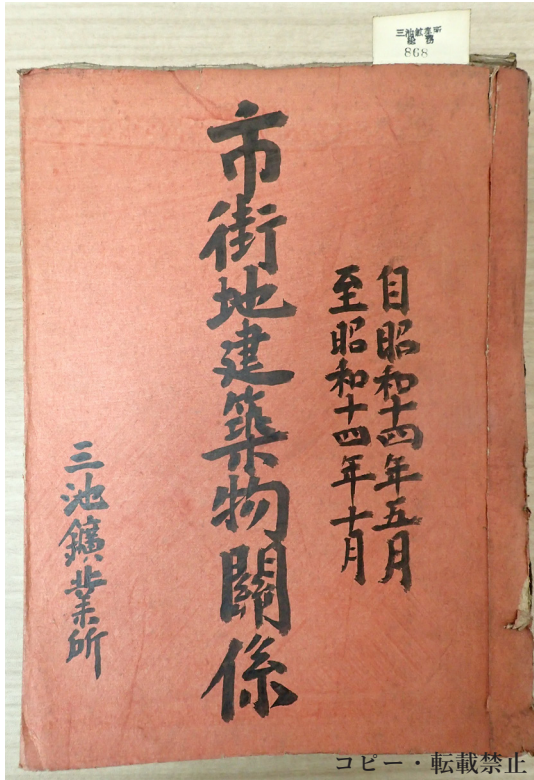 868
自昭和十四年五月
至昭和十四年十月
市街地建築物關係
三池鑛業所
コピー・転載禁止